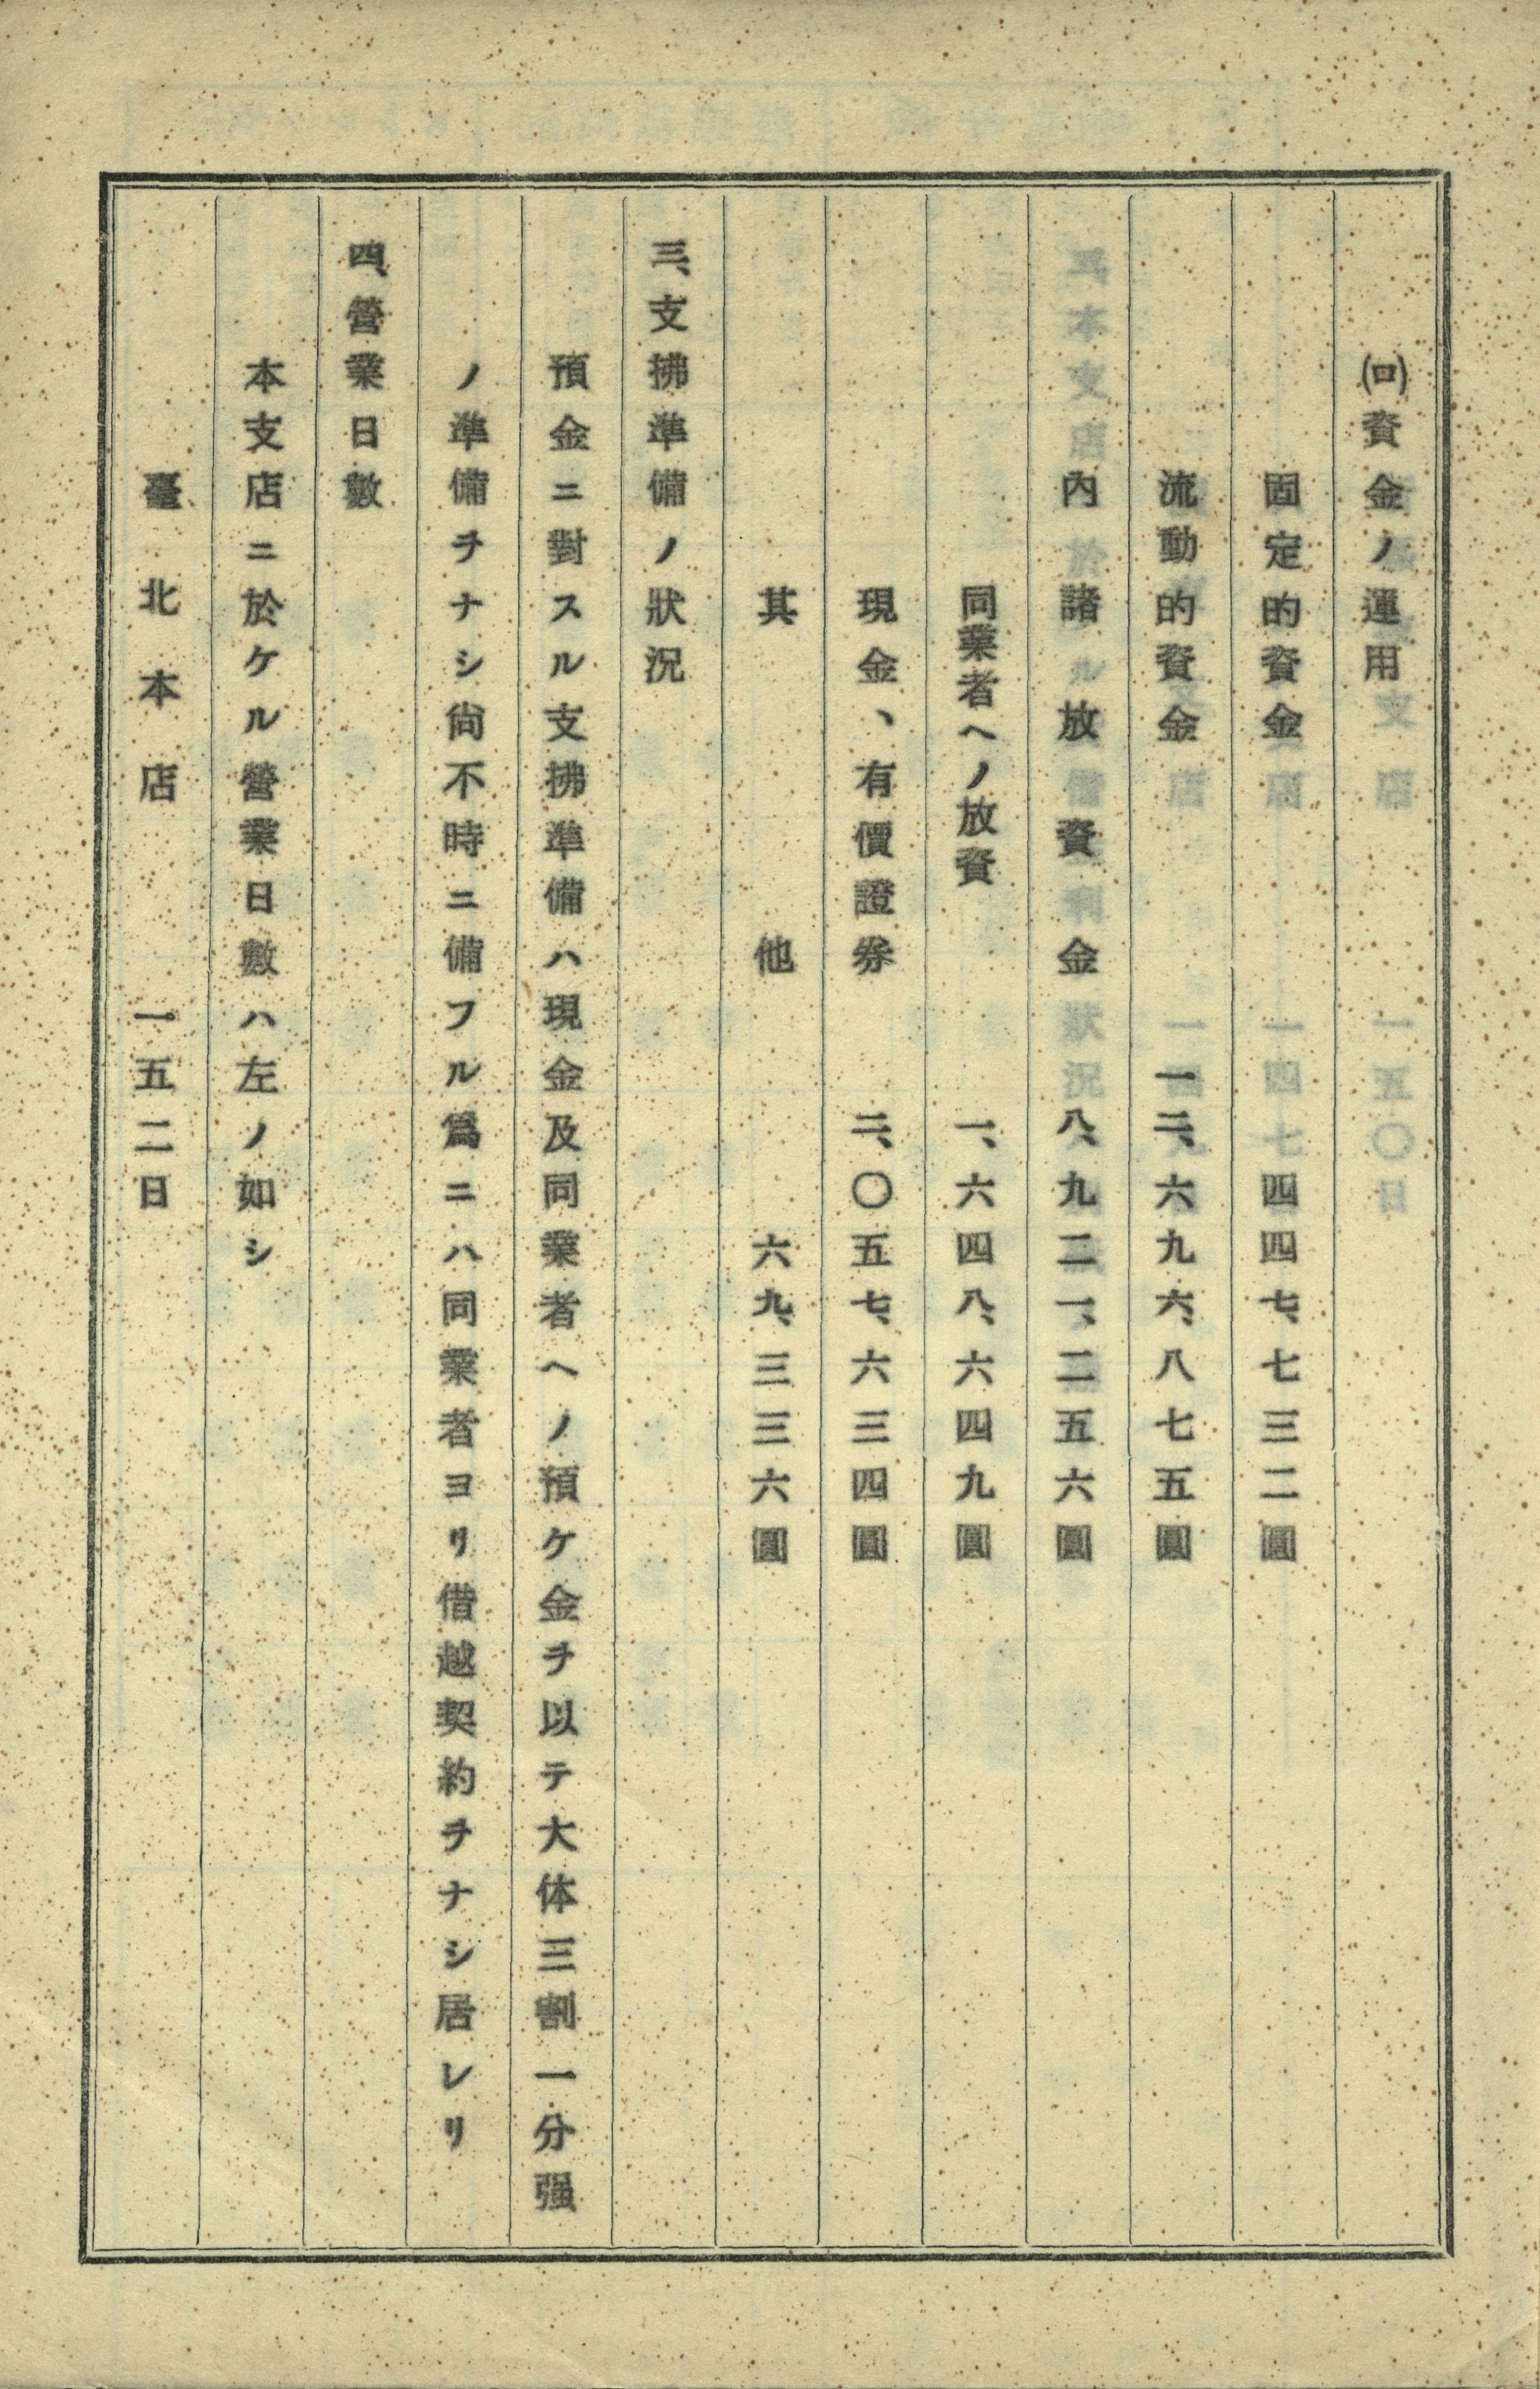 (ロ)資金ノ運用
固定的資金　四四七、七三二圓
流動的資金　一二、六九六、八七五圓
內　諸放資金　八、九二一、二五六圓
同業者ヘノ放資　一、六四八、六四九圓
現金、有價證券　二、〇五七、六三四圓
其他　六九、三三六圓
三、支拂準備ノ狀況
預金ニ對スル支拂準備ハ現金及同業者ヘノ預ケ金ヲ以テ大体三割一分强
ノ準備ヲナシ尙不時ニ備フル爲ニハ同業者ヨリ借越契約ヲナシ居レリ
四、營業日數
本支店ニ於ケル營業日數ハ左ノ如シ
臺北本店　一五二日